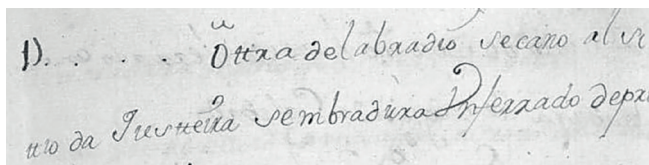 1). . . . . Ottra de labradio secano al si
tio da Sembradura Ynferrado depri